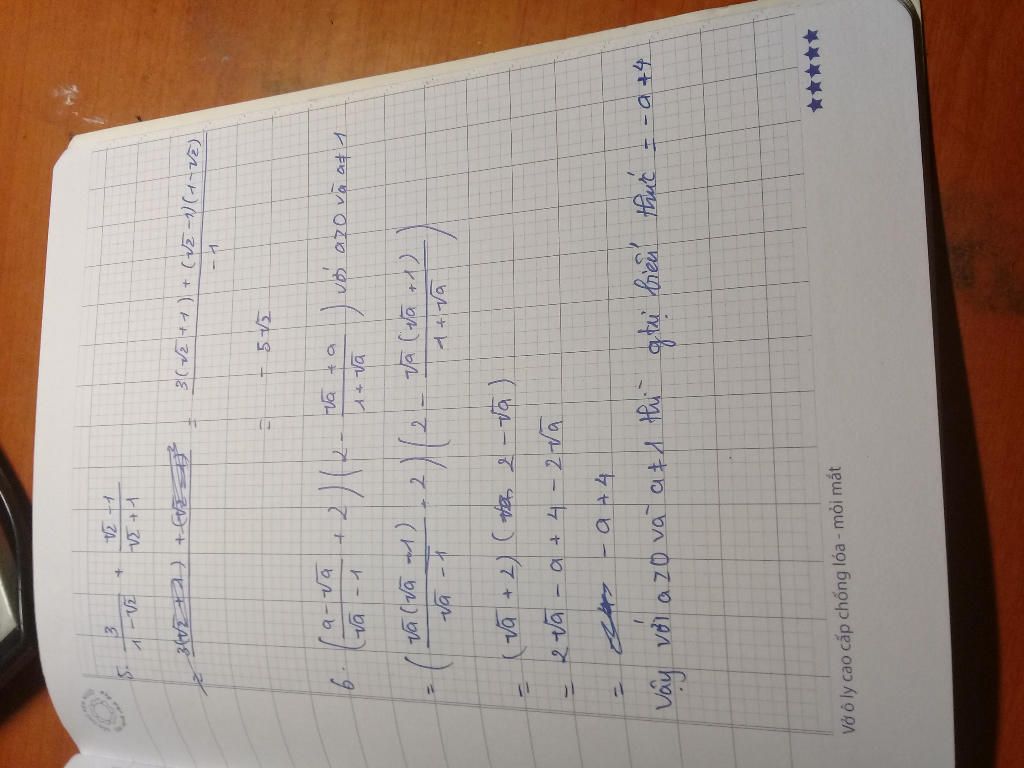 5. 3/(1-√2) + (√2-1)/(√2+1)
= (3(√2+1) + (√2-1)(1-√2))/-1
= -5√2
6. ((a-√a)/(√a-1) + 2)(2 - (√a+a)/(1+√a)) với a>0 và a≠1
= (√a(√a-1)/(√a-1) + 2)(2 - √a(√a+1)/(1+√a))
= (√a+2)(2-√a)
= 2√a - a + 4 - 2√a
= -a+4
Vậy với a>0 và a≠1 thì giá trị biểu thức = -a+4
Vở ô ly cao cấp chống lóa - mỏi mắt